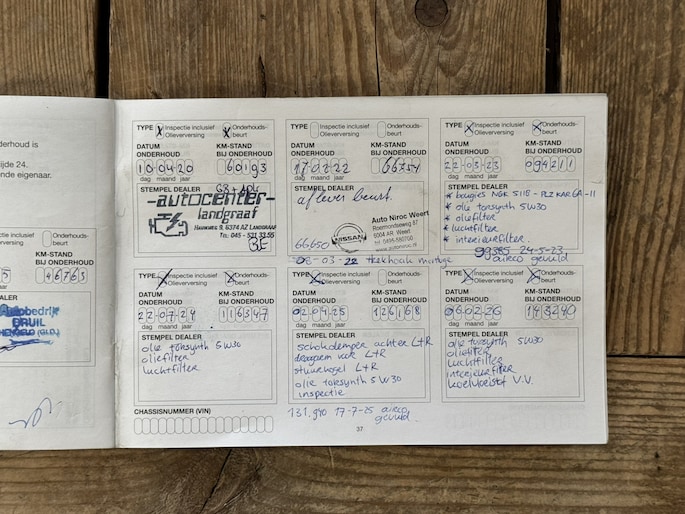 derhoud is
ijde 24.
ende eigenaar.
KM-STAND
BIJ ONDERHOUD
46763
ALER
DRUIL
TYPE
Inspectie inclusief
Olieverversing
Onderhouds-
beurt
DATUM
ONDERHOUD
KM-STAND
BIJ ONDERHOUD
10 04 20
60193
dag maand jaar
STEMPEL DEALER
-autocenter-
landgraaf
Hauwers 9, 6374 AZ LANDGRAAF
Tel.: 045 - 531 33 55
TYPE
Inspectie inclusief
Olieverversing
Onderhouds-
beurt
DATUM
ONDERHOUD
KM-STAND
BIJ ONDERHOUD
17 02 22
66454
dag maand jaar
STEMPEL DEALER
aflever beurt.
Auto Niroc Weert
Roermondseweg 57
6004 AR Weert
tel. 0495-580700
www.autoniroc.nl
NISSAN
66650
08-03-22 trekhaak montage
TYPE
Inspectie inclusief
Olieverversing
Onderhouds-
beurt
DATUM
ONDERHOUD
KM-STAND
BIJ ONDERHOUD
22 03 23
094211
dag maand jaar
STEMPEL DEALER
* bougies NGK 5118 - PLZKAR6A-11
* olie torsynth 5W30
* oliefilter
* luchtfilter
* interieurfilter.
99385 24-5-23
airco gevuld
TYPE
Inspectie inclusief
Olieverversing
Onderhouds-
beurt
DATUM
ONDERHOUD
KM-STAND
BIJ ONDERHOUD
22 07 24
116347
dag maand jaar
STEMPEL DEALER
olie torsynth 5W30
oliefilter
luchtfilter
CHASSISNUMMER (VIN)
TYPE
Inspectie inclusief
Olieverversing
Onderhouds-
beurt
DATUM
ONDERHOUD
KM-STAND
BIJ ONDERHOUD
02 04 25
126168
dag maand jaar
STEMPEL DEALER
schokdemper achter L+R
draagarm voor L+R
stuurkogel L+R
olie torsynth 5W30
inspectie
131.910 17-7-25 airco
gevuld
TYPE
Inspectie inclusief
Olieverversing
Onderhouds-
beurt
DATUM
ONDERHOUD
KM-STAND
BIJ ONDERHOUD
06 02 26
143240
dag maand jaar
STEMPEL DEALER
olie torsynth 5W30
oliefilter
luchtfilter
interieurfilter
koelvloeistof V.V.
37